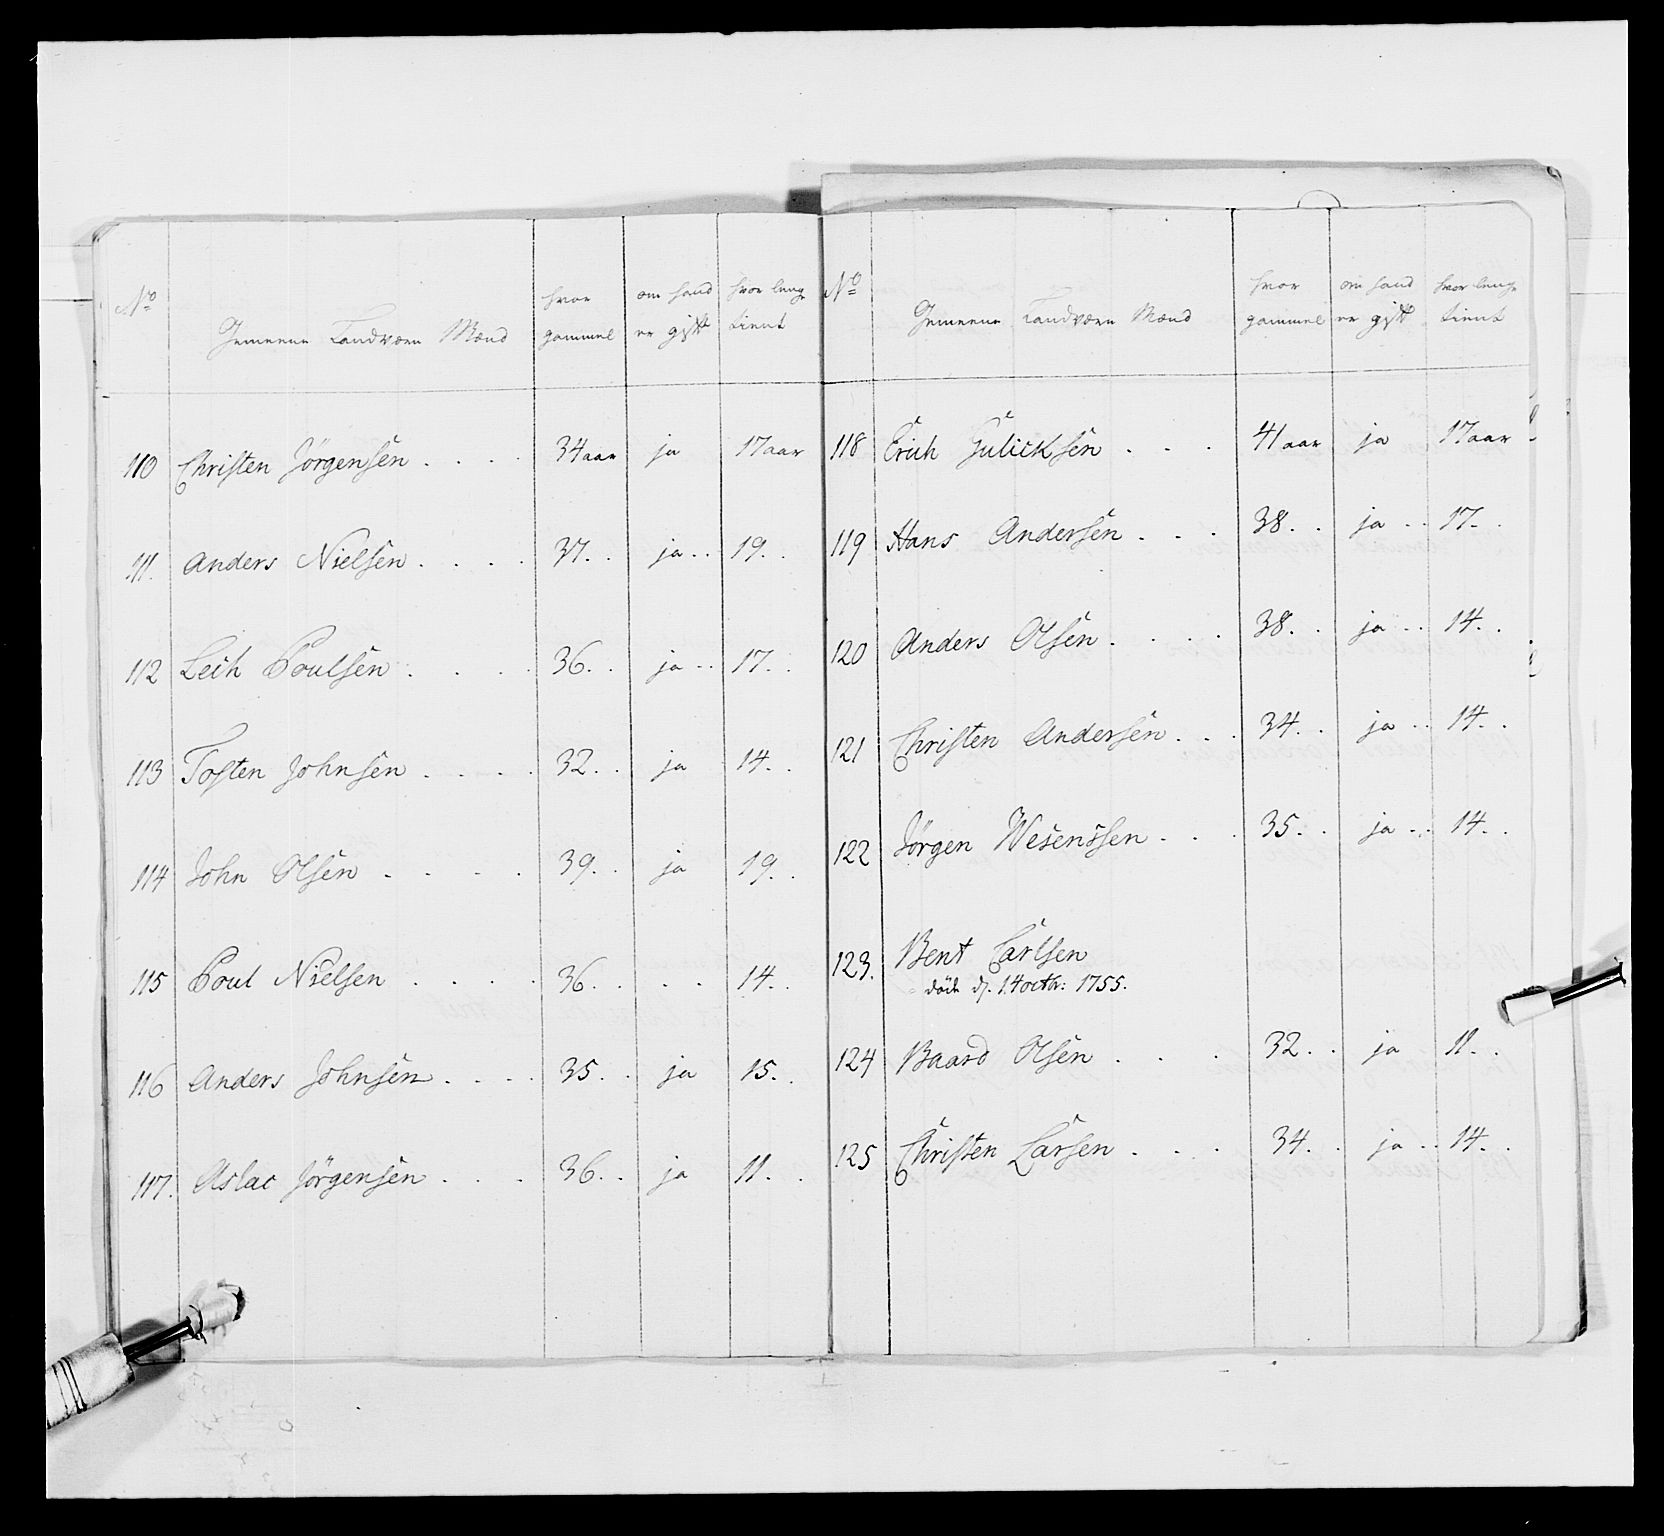 No Gemeene Landværn Mænd hvor gammel om hand er gift hvor lenge tient
110 Christen Jörgensen . . . . 34 aar ja 17 aar
111. Anders Nielsen . . . . 37. . ja . . 19. .
112 Leih Poulsen . . . . 36. . ja . . 17. .
113 Tosten Johnsen . . . . 32. . ja 14. .
114 John Olsen . . . . 39. . ja 19. .
115 Poul Nielsen . . . . 36. . . . 14. .
116 Anders Johnsen . . . . 35. . ja 15. .
117. Aslac Jörgensen . . . 36. . ja 11. .
No Gemeene Landværn Mænd hvor gammel om hand er gift hvor lenge tient
118 Erich Gulicksen . . . 41 aar ja 17 aar
119 Hans Andersen . . . 38. . ja . . 17. .
120 Anders Olsen . . . . 38. . ja . . 14. .
121 Christen Andersen . . . 34. . ja . . 14. .
122 Jörgen Wesenssen . . . 35. . ja . . 14. .
123. Bent Carlsen
döde d. 14 octbr: 1755.
124 Baard Olsen . . . 32. . ja 11. .
125 Christen Larsen . . . . 34. . ja . . 14. .